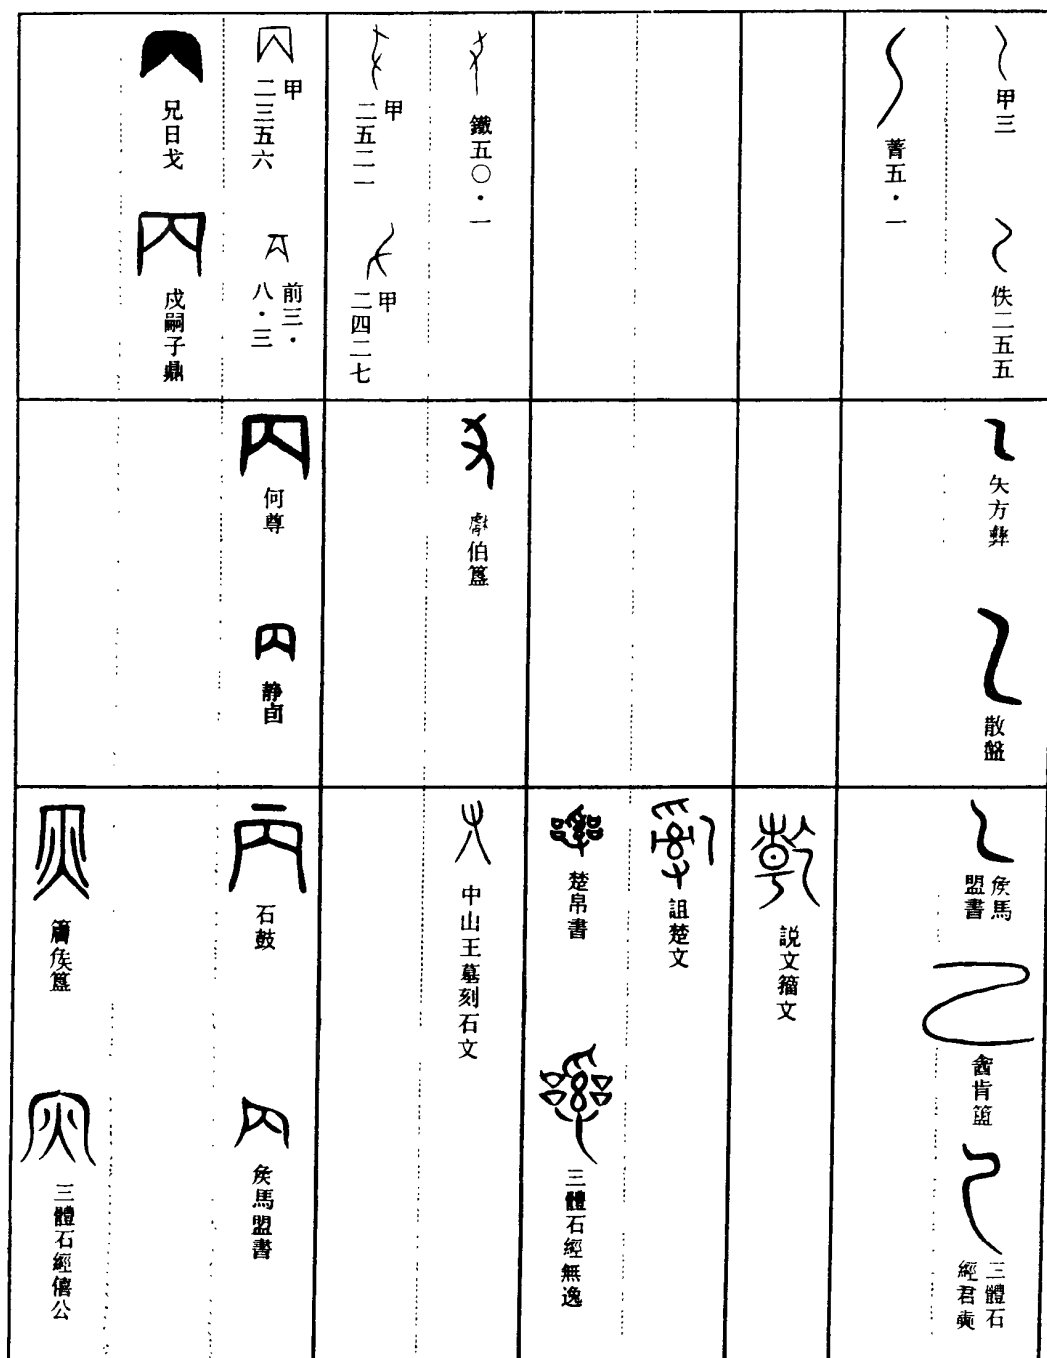 甲三
佚二五五
菁五·一
鐵五〇·一
甲
二五二一
甲
二四二七
甲
二三五六
前三·
八·三
兄日戈
戍嗣子鼎
夨方彝
散盤
伯簋
何尊
静卣
侯馬
盟書
酓肯簠
三體石
經君奭
説文籀文
詛楚文
楚帛書
三體石經無逸
中山王墓刻石文
石鼓
侯馬盟書
侯簋
三體石經僖公